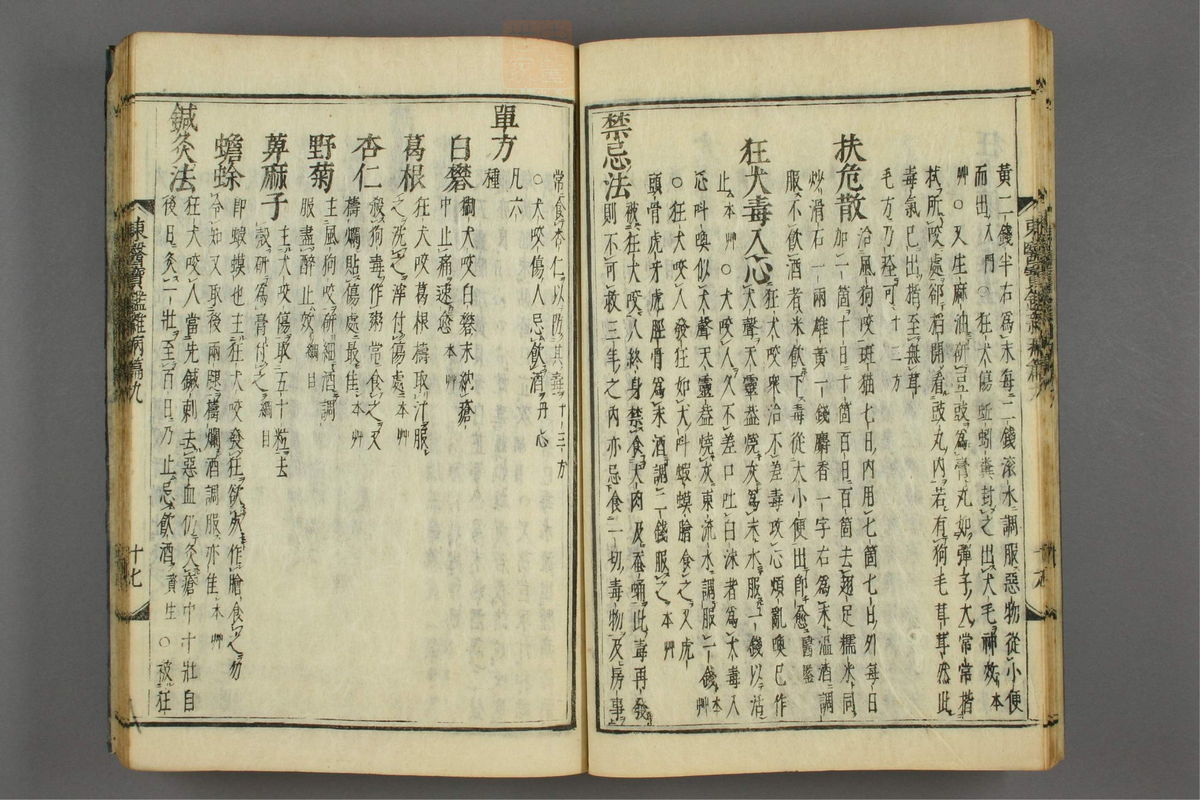 黃二錢半右爲末每二錢滾水調服惡物從小便
而出入門○狂犬傷蚯蚓糞封之出犬毛神效本
艸○又生麻油研豆豉爲膏丸如彈子大常常揩
拭所咬處卻掐開看豉丸內若有狗毛茸茸然此
毒氣已出揩至無茸
毛方乃可十三方
扶危散治風狗咬斑猫七日內用七箇七日外每日
加一箇十日十箇百日百箇去翅足糯米同
炒滑石一兩雄黃一錢麝香一字右爲末溫酒調
服不飮酒者米飮下毒從大小便出卽愈醫鑑
狂犬毒入心狂犬咬眾治不差毒攻心煩亂喚已作
犬聲天靈盖燒灰爲末水服一錢以活
止本艸○犬咬人久不差口吐白沫者爲犬毒入
心叫喚似犬聲天靈盖燒灰東流水調服一錢本艸
○狂犬咬人發狂如犬叫蝦蟆膾食之又虎
頭骨虎牙虎脛骨爲末酒調二錢服之本艸
禁忌法被狂犬咬人終身禁食犬肉及蚕蛹此毒再發
則不可救三年之內亦忌食一切毒物及房事
常食杏仁以防其毒十三方
○犬咬傷人忌飮酒丹心
單方凡六種
白礬㺉犬咬白礬末納瘡
中止痛速愈本艸
葛根狂犬咬葛根擣取汁服
之洗之滓付傷處本艸
杏仁殺狗毒作粥常食之又
擣爛貼傷處最佳本艸
野菊主風狗咬研細酒調
服盡醉止效綱目
萆麻子主犬咬傷取五十粒去
殼硏爲膏付之綱目
蟾蜍卽蝦蟆也主狂犬咬發狂欲死作膾食之勿
令知又取後兩腿擣爛酒調服亦佳本艸
鍼灸法狂犬咬人當先鍼刺去惡血仍灸瘡中十壯自
後日灸一壯至百日乃止忌飮酒資生○被狂
東醫寶鑑雜病篇九
十七